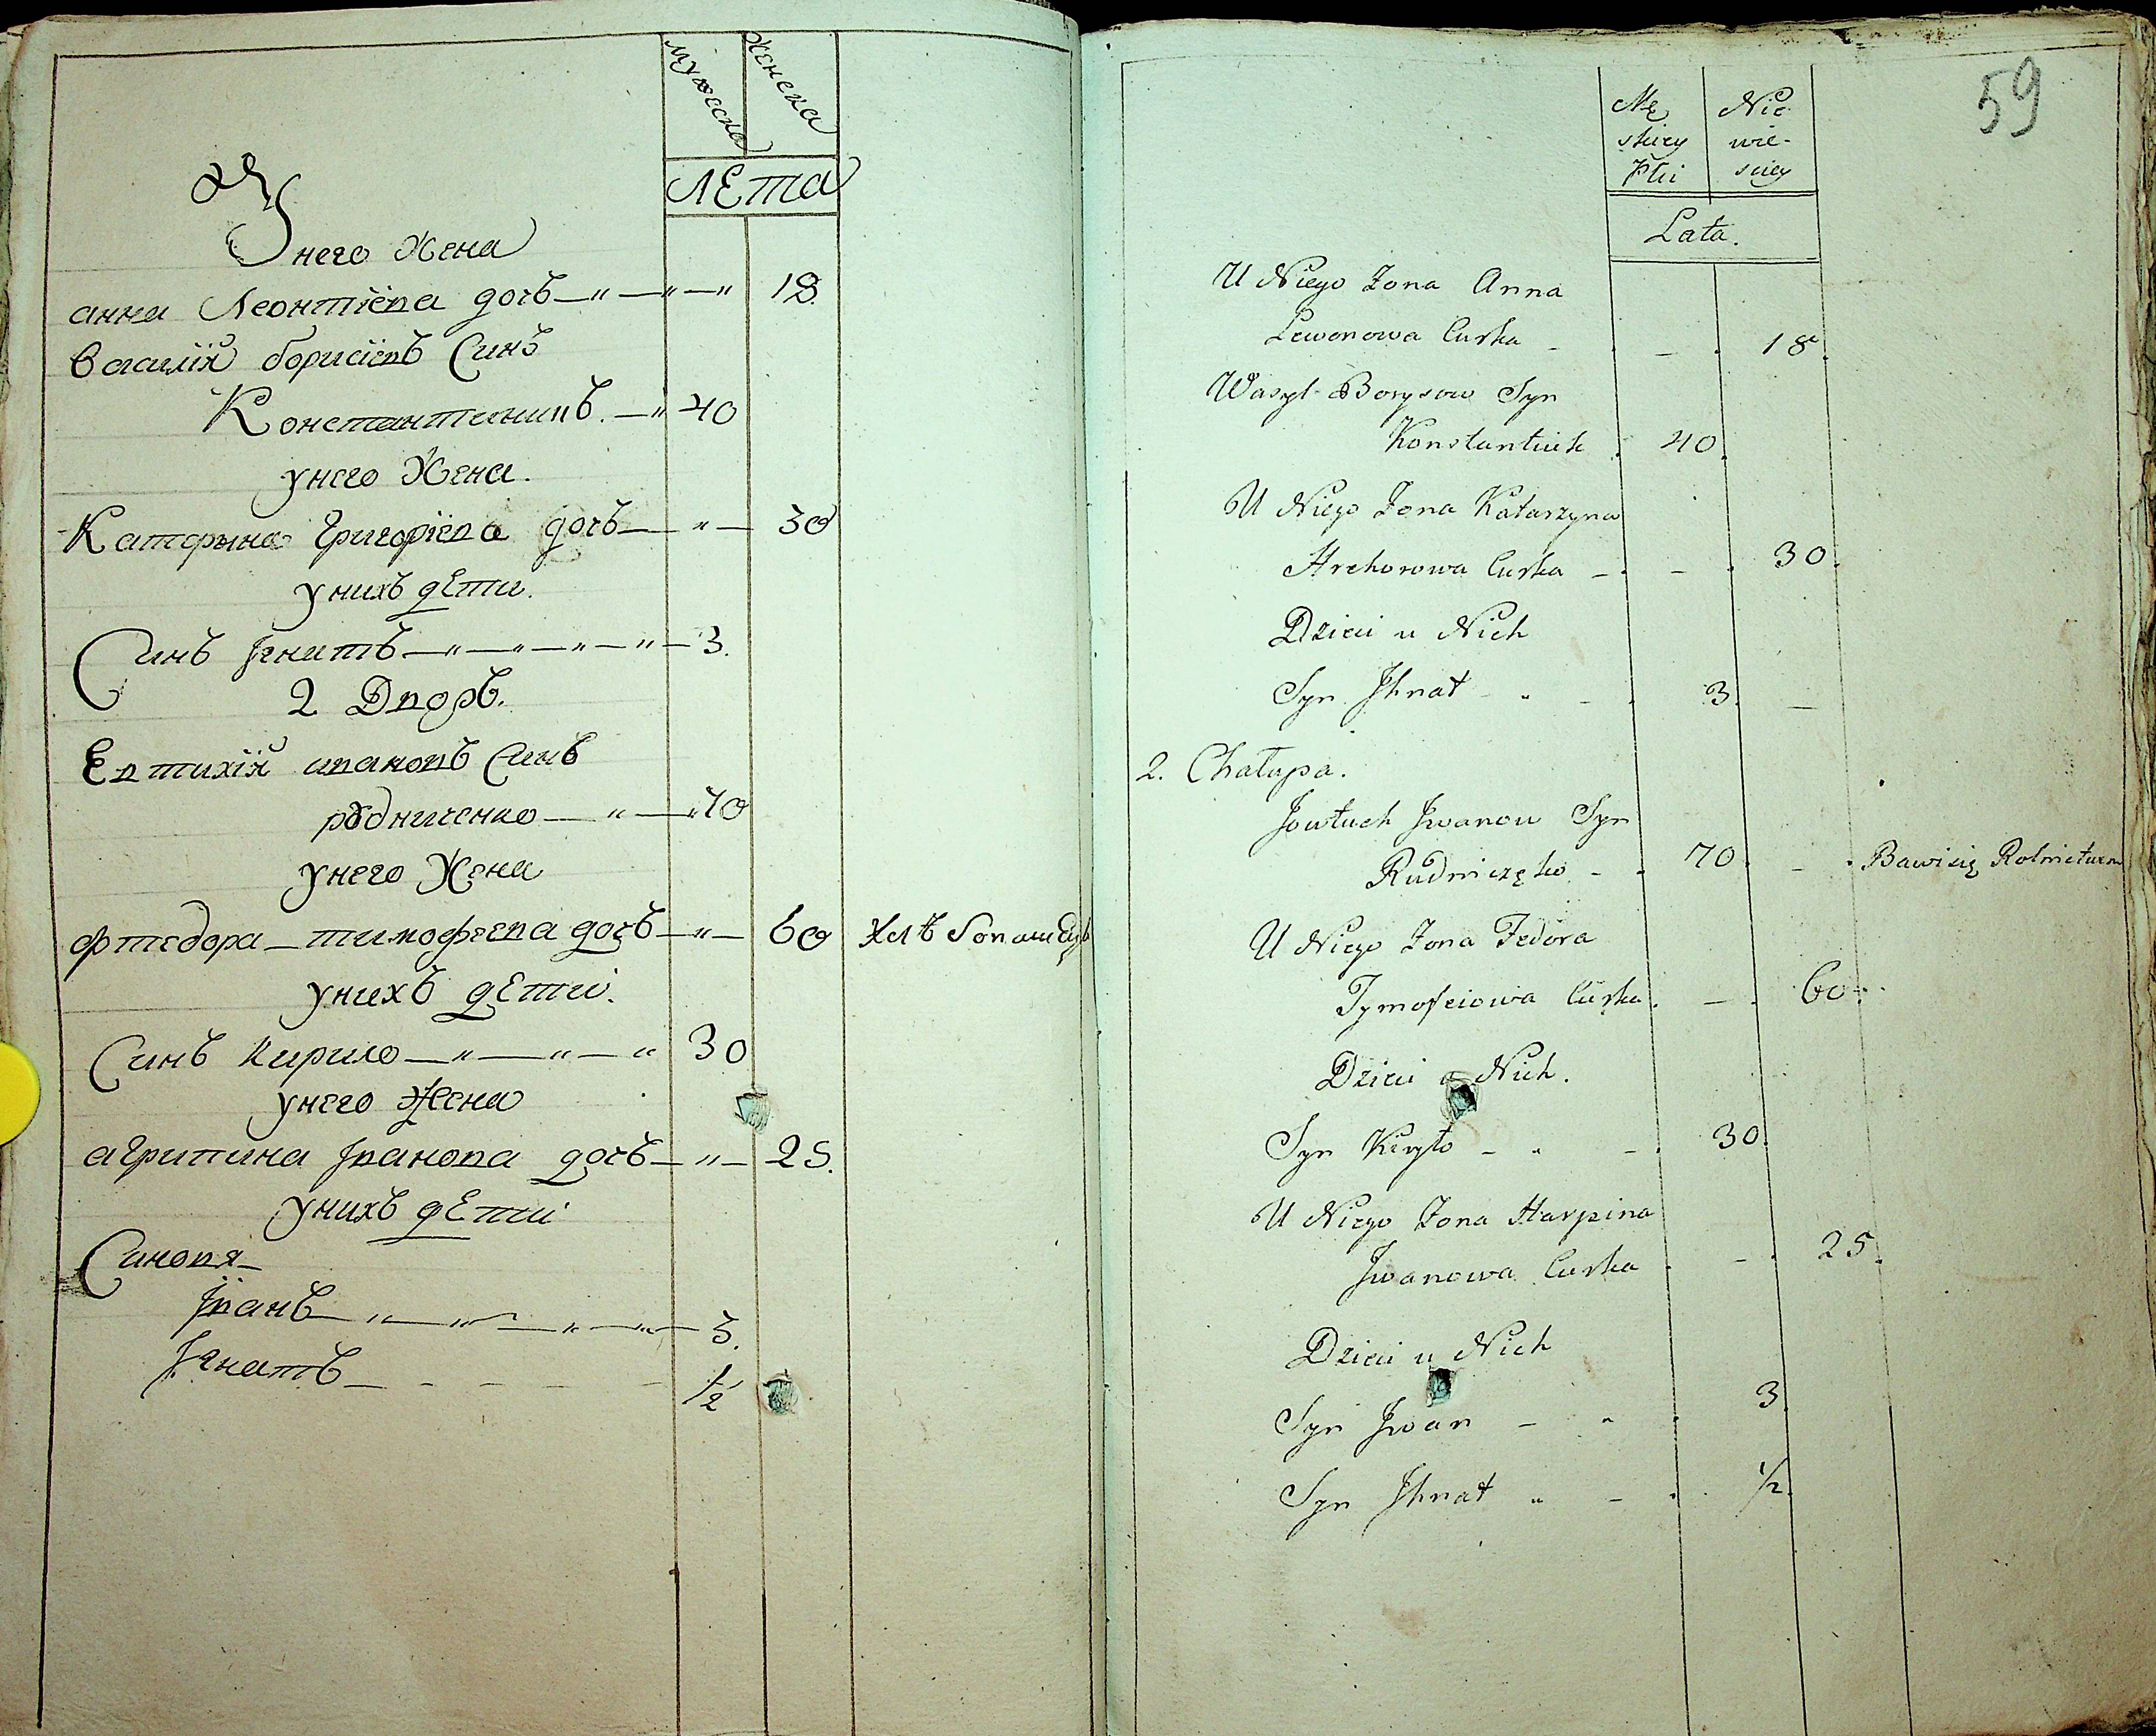 мужеска
женска
лета
У него жена
анна Леонтіева дочъ 18.
василій борисівъ Синъ
Константинивъ. 40
у него жена.
Катерына Григоріева дочъ 30
у нихъ дети.
Синъ Ігнатъ 3.
2 Дворъ.
Евтихій ивановъ Синъ
рудниченко 70
у него Жена
фтедора тимофеева дочъ 60
у нихъ дети.
Синъ кирило 30
у него жена
агрипина Іванова дочъ 25.
у нихъ дети
Синовя
Іванъ 3.
Ігнатъ 1/2
59
Mę
skiey
Płci
Nie
wie-
sciey
Lata.
U Niego Zona Anna
Lewonowa Curka - - 18.
Wasyl Borysow Syn
Konstantiuk 40.
U Niego Zona Katarzyna
Hrehorowa Curka - - 30.
Dzieci u Nich
Syn Jhnat - 3. -
2. Chałupa.
Jowtuch Jwanow Syn
Rudniczęko - 70. - Bawi się Rolnictwem
U Niego Zona Fedora
Tymofeiowa Curka. - 60.
Dzieci u Nich.
Syn Kiryło - - 30.
U Niego Zona Harpina
Jwanowa Curka - 25.
Dzieci u Nich
Syn Jwan - 3.
Syn Jhnat - 1/2.